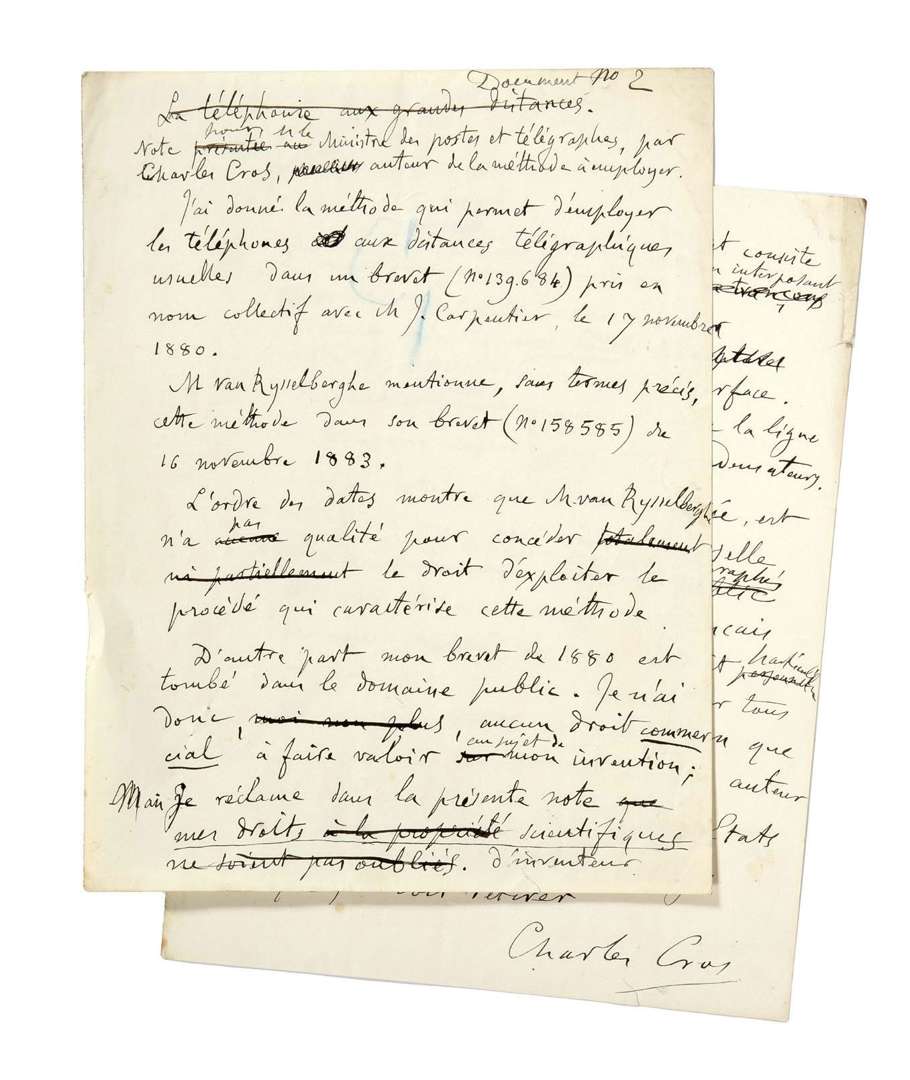 Document No 2
La téléphonie aux grandes distances.
pour M le
Note présentée au Ministre des postes et télégraphes, par
Charles Cros, auteur de la méthode à employer.
J'ai donné la méthode qui permet d'employer
les téléphones aux distances télégraphiques
usuelles dans un brevet (no 139.684) pris en
nom collectif avec M J. Carpentier, le 17 novembre
1880.
M van Rysselberghe mentionne, sans termes précis,
cette méthode dans son brevet (no 158585) du
16 novembre 1883.
L'ordre des dates montre que M. van Rysselberghe
pas
n'a aucune qualité pour concéder totalement
ni partiellement le droit d'exploiter le
procédé qui caractérise cette méthode
D'autre part mon brevet de 1880 est
tombé dans le domaine public. Je n'ai
donc, moi non plus, aucun droit commer
au sujet de
cial à faire valoir sur mon invention;
Mais Je réclame dans la présente note que
mes droits à la propriété scientifiques
ne soient pas oubliés. d'inventeur
t consiste
n interposant
rface.
la ligne
densateurs.
ée, est
selle
graphes
blic
nçais
r tous
n que
auteur
Etats
retirer
Charles Cros